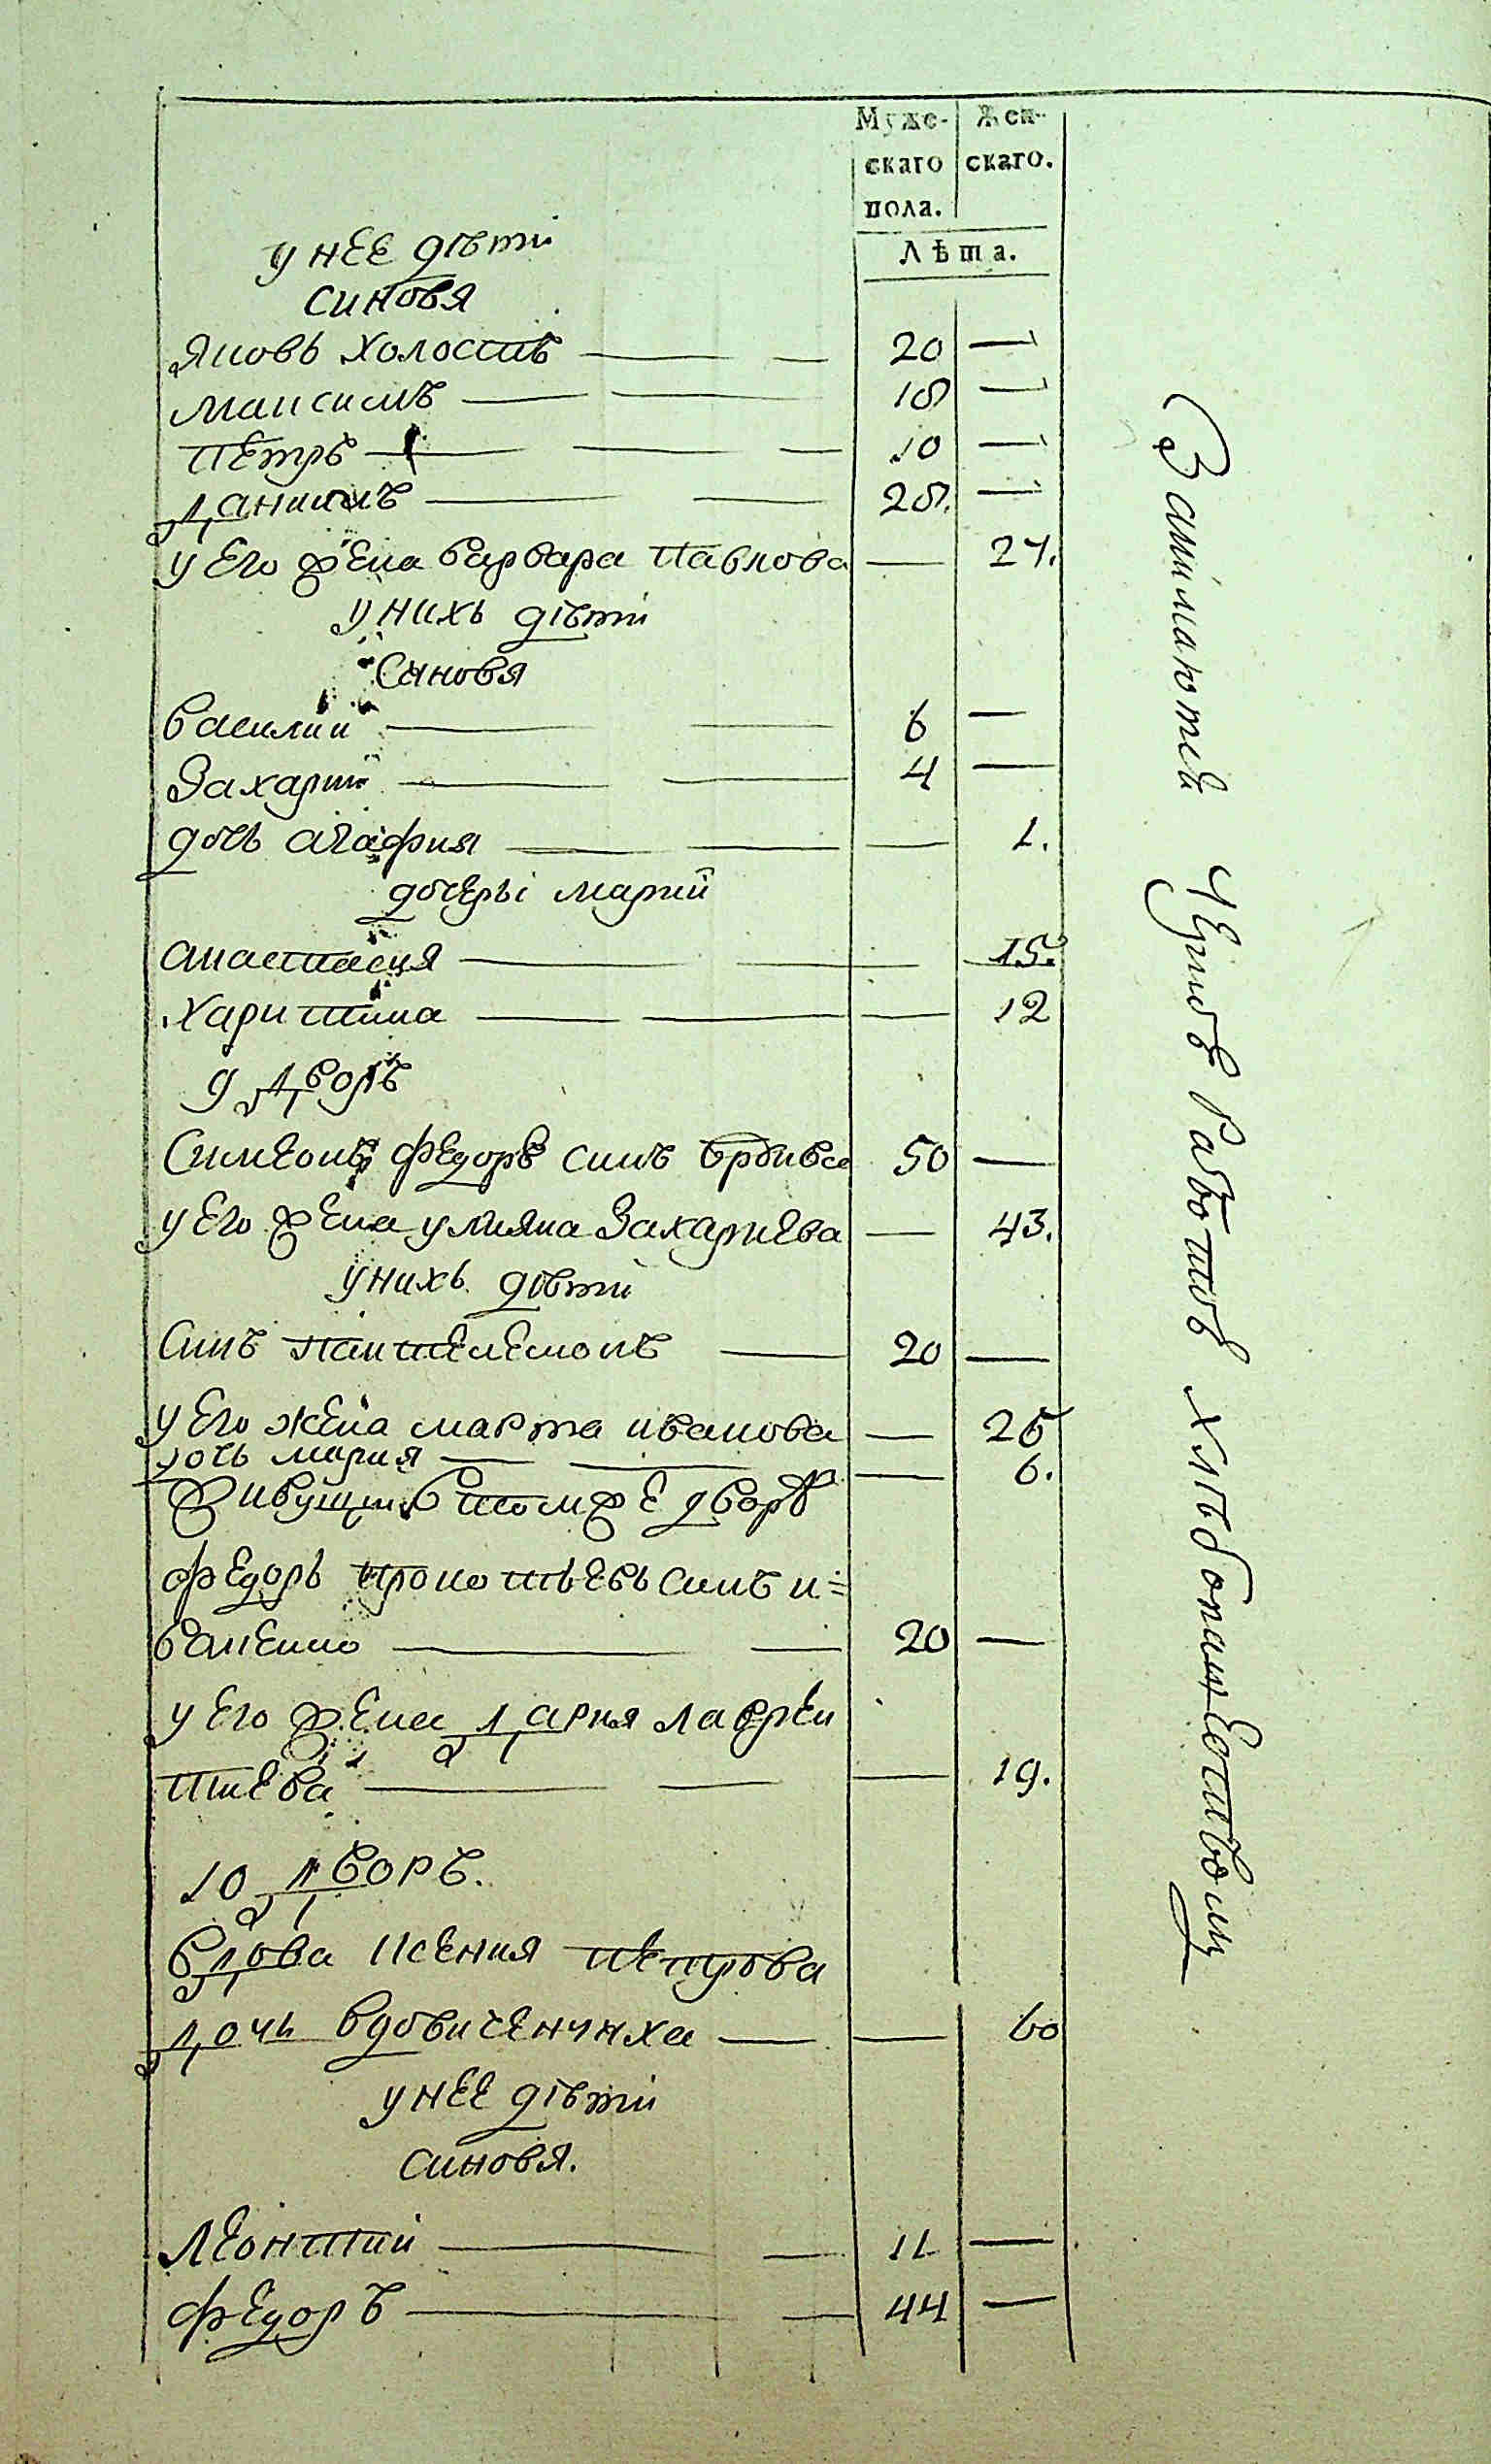 Муже- Жен-
скаго скаго.
пола.
Лѣта.
у нее дѣти
синовя
Яковъ холостъ — — 20 —
Максимъ — — 18 —
Петръ — — — 10 —
Даниилъ — — 28. —
у Его жена варвара Павлова — 27.
у нихъ дѣти
Синовя
василий — — 6 —
Захарий — — 4 —
дочь агафия — — — 1.
дочеры марии
анастасия — — 15.
Харитина — — — 12
9 Дворъ
Симеонъ федоръ синъ 50 —
у Его жена улияна Захариева — 43.
у нихъ дѣти
Синъ Пантелемонъ — 20 —
у Его жена марта иванова — 25
дочь мария — — — 6.
Живущии в томже дворѣ
федоръ прокотиевъ синъ и=
ваненко — — 20 —
у Его жена Дария лаврен
тиева — — — 19.
10 Дворъ.
Вдова Ксения Петрова
Дочь вдовиченчиха — — 60
у нее дѣти
синовя.
Леонтий — — 11 —
федоръ — — 44 —
Занимаются чернов работов хлѣбопашеством